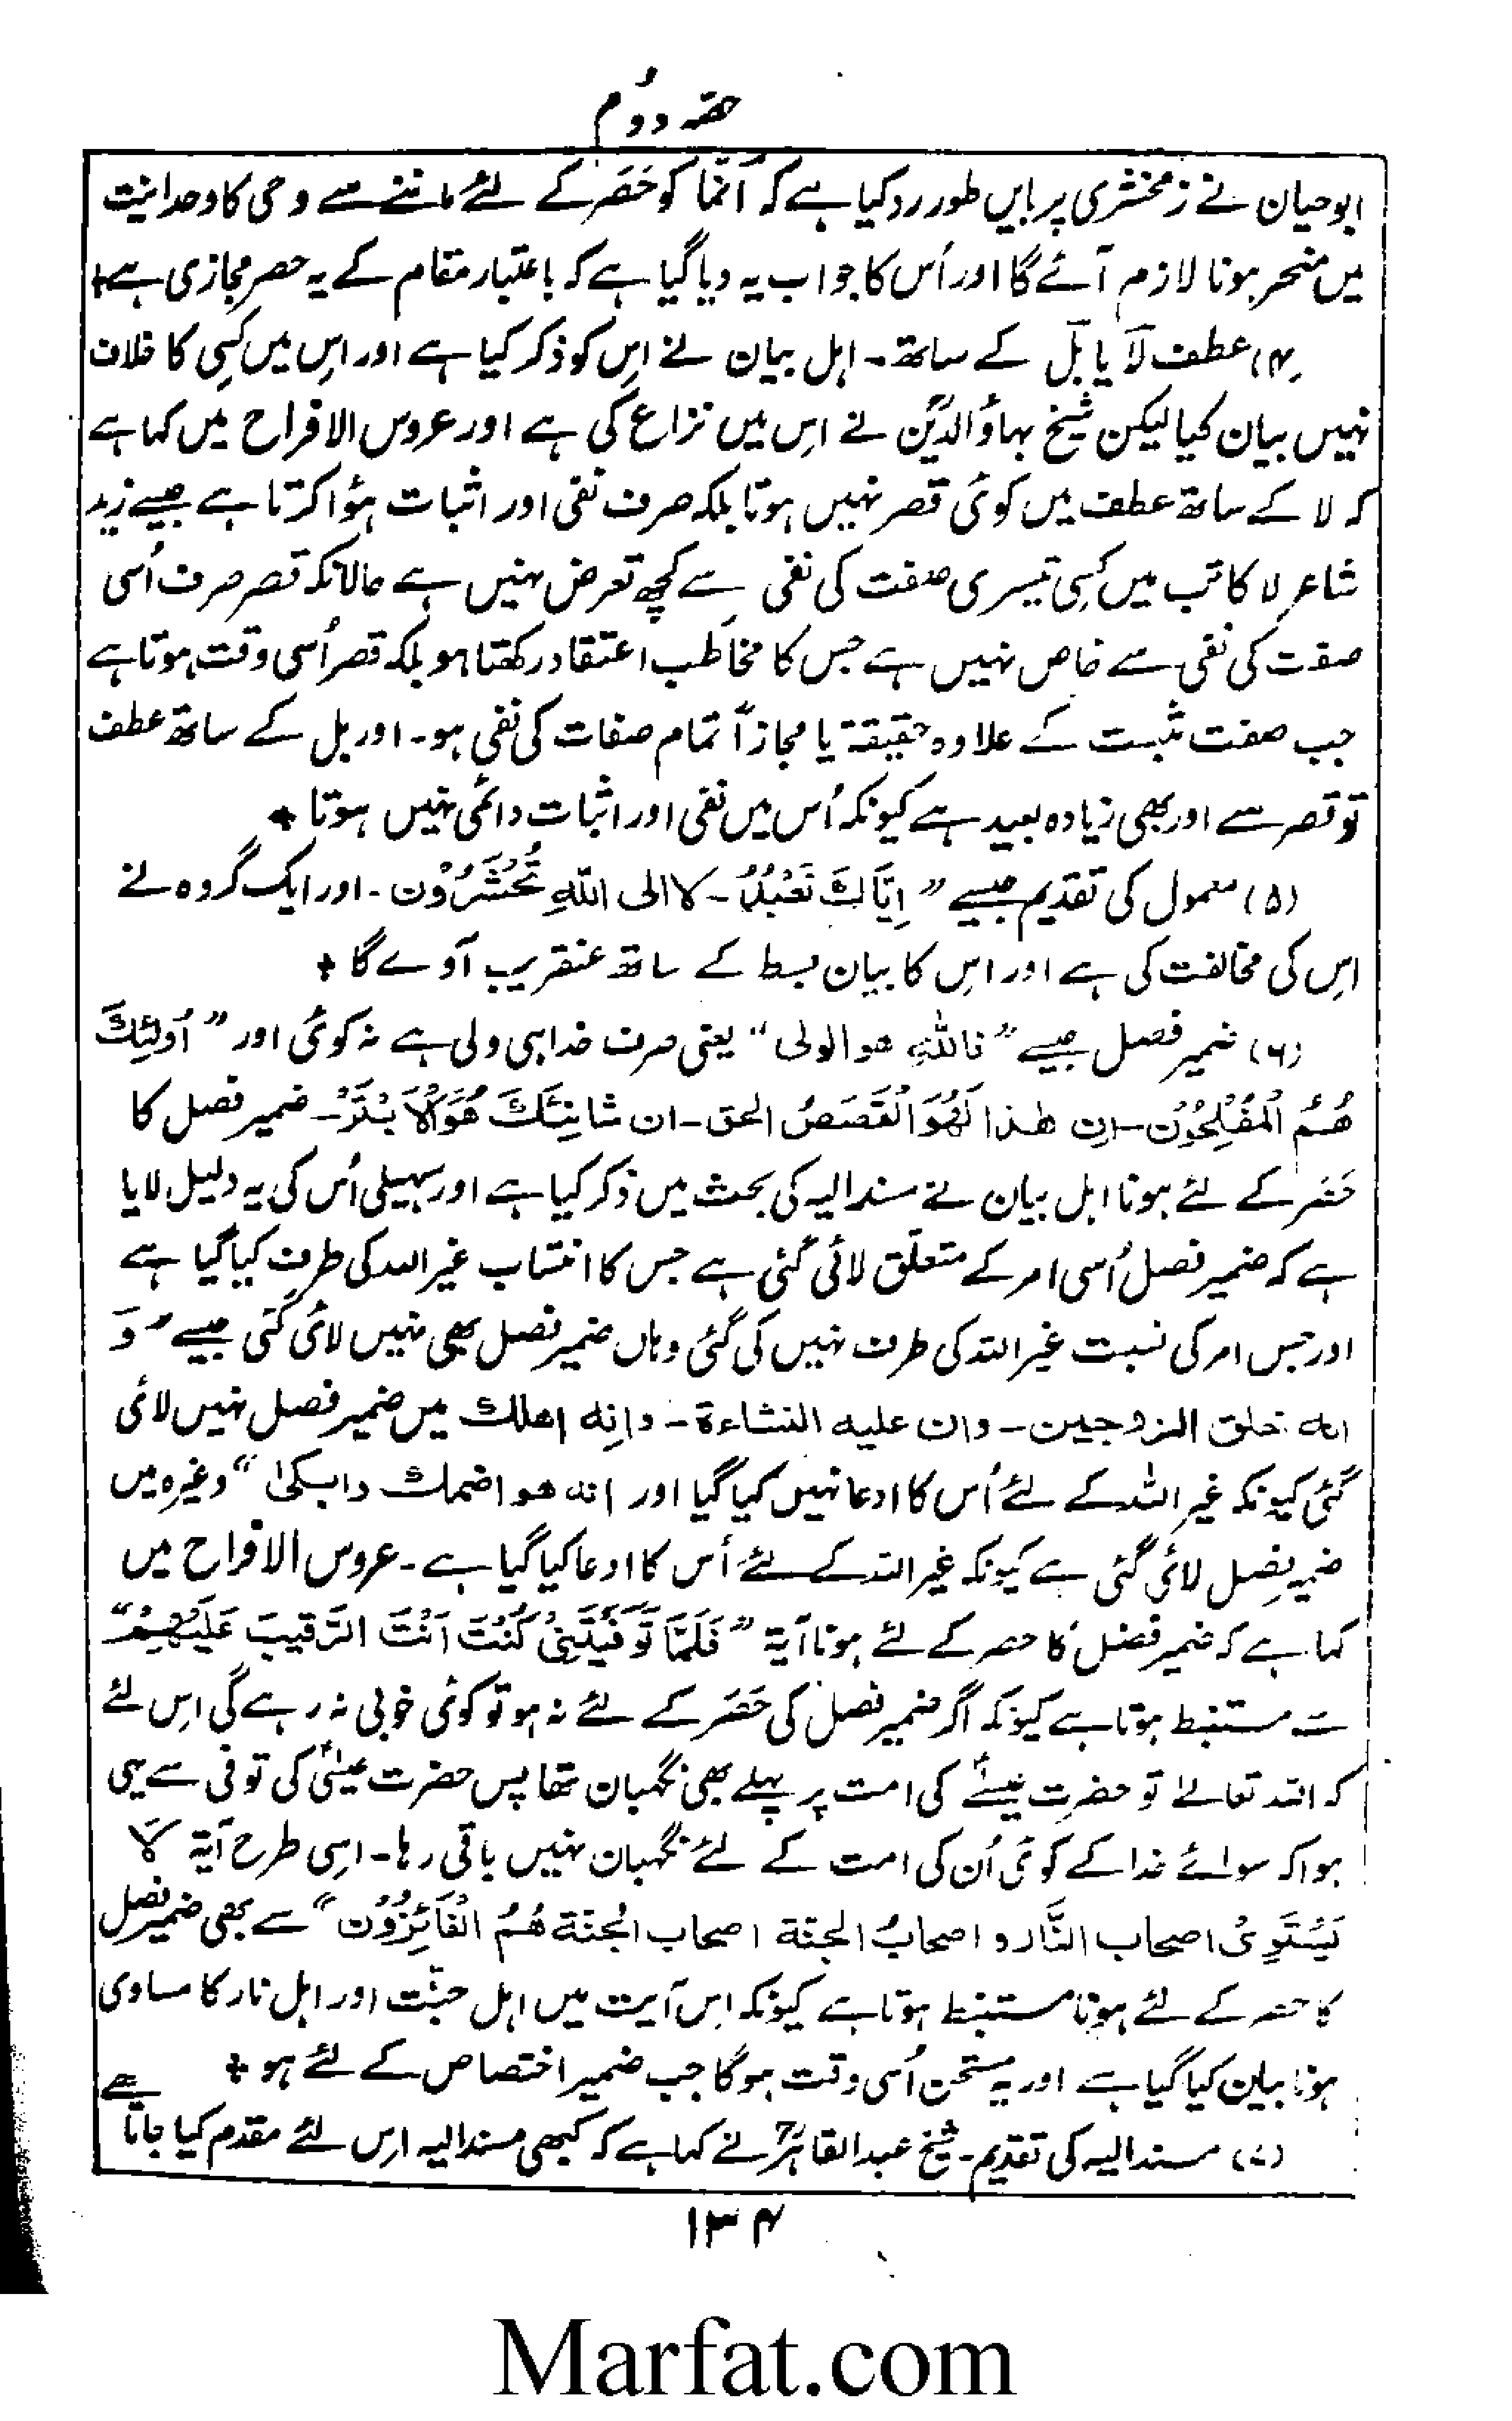 حصہ دوُم
ابوحیان نے زمخشری پر بایں طور رد کیا ہے کہ اَنَّمَا کو حَصَر کے لئے ماننے سے وحی کا وحدانیت
میں منحصر ہونا لازم آئے گا اور اُس کا جواب یہ دیا گیا ہے کہ باعتبار مقام کے یہ حصر مجازی ہے +
(۴) عطف لَا یا بَل کے ساتھ۔ اہل بیان نے اِس کو ذکر کیا ہے اور اِس میں کسِی کا خلاف
نہیں بیان کیا لیکن شیخ بہاؤالدّین نے اِس میں نزاع کی ہے اور عروس الافراح میں کہا ہے
کہ لا کے ساتھ عطف میں کوئی قصر نہیں ہوتا بلکہ صرف نفی اور اثبات ہؤا کرتا ہے جیسے زید
شاعر لا کاتب میں کسِی تیسری صفت کی نفی سے کچھ تعرض نہیں ہے حالانکہ قصر صرف اُسی
صفت کی نفی سے خاص نہیں ہے جس کا مخاطب اعتقاد رکھتا ہو بلکہ قصر اُسی وقت ہوتا ہے
جب صفت مثبت کے علاوہ حقیقۃ یا مجازاً تمام صفات کی نفی ہو۔ اور بل کے ساتھ عطف
تو قصر سے اور بھی زیادہ بعید ہے کیونکہ اُس میں نفی اور اثبات دائمی نہیں ہوتا +
(۵) معمول کی تقدیم جیسے ” اِیَّاکَ نَعْبُدُ۔ لا الی اللّٰہِ تُحْشَرُوْن۔ اور ایک گروہ نے
اِس کی مخالفت کی ہے اور اِس کا بیان بسط کے ساتھ عنقریب آوے گا +
(۶) ضمیر فصل جیسے ” فاللّٰہِ ھو الولی “ یعنی صرف خدا ہی ولی ہے نہ کوئی اور ” اُولٰئِکَ
ھُمُ الْمُفْلِحُوْن۔ اِن ھٰذا لَھُوَ الْقَصَصُ الحق۔ ان شانِئَکَ ھُوَ الْاَبْتَرْ۔ ضمیر فصل کا
حَصَر کے لئے ہونا اہل بیان نے مسند الیہ کی بحث میں ذکر کیا ہے اور سہیلی اُس کی یہ دلیل لایا
ہے کہ ضمیر فصل اُسی امر کے متعلّق لائی گئی ہے جس کا انتساب غیر اللہ کی طرف کیا گیا ہے
اور جس امر کی نسبت غیر اللہ کی طرف نہیں کی گئی وہاں ضمیر فصل بھی نہیں لائی گئی جیسے ” وَ
انہ خلق الزوجین۔ وان علیہ النشاءۃ۔ وانہ اھلک میں ضمیر فصل نہیں لائی
گئی کیونکہ غیر اللہ کے لئے اُس کا ادعا نہیں کیا گیا اور انہ ھو اضحک وابکیٰ “ وغیرہ میں
ضمیر فصل لائی گئی ہے کیونکہ غیر اللہ کے لئے اُس کا ادعا کیا گیا ہے۔ عروس الافراح میں
کہا ہے کہ ضمیر فصل کا حصر کے لئے ہونا آیۃ ” فَلَمَّا تَوَفَّیْتَنِیْ کُنْتَ اَنْتَ الرَّقِیبَ عَلَیْھِمْ “
سے مستنبط ہوتا ہے کیونکہ اگر ضمیر فصل کی حَصَر کے لئے نہ ہو تو کوئی خوبی نہ رہے گی اِس لئے
کہ اللہ تعالےٰ تو حضرت عیسےٰؑ کی امت پر پہلے بھی نگہبان تھا پس حضرت عیسٰیؑ کی توفی سے یہی
ہوا کہ سوائے خدا کے کوئی اُن کی امت کے لئے نگہبان نہیں باقی رہا۔ اسِی طرح آیۃ لَا
یَسْتَوِیْ اصحاب النَّار و اصحابُ الجنۃ اصحاب الجنۃ ھُمُ الْفَائِزُوْن “ سے بھی ضمیر فصل
کا حصر کے لئے ہونا مستنبط ہوتا ہے کیونکہ اِس آیت میں اہل جنّت اور اہل نار کا مساوی
ہونا بیان کیا گیا ہے اور یہ مستحسن اُسی وقت ہوگا جب ضمیر اختصاص کے لئے ہو +
(۷) مسند الیہ کی تقدیم۔ شیخ عبدالقاہرؒ نے کہا ہے کہ کبھی مسند الیہ اِس لئے مقدم کیا جاتا ہے
۱۳۴
Marfat.com